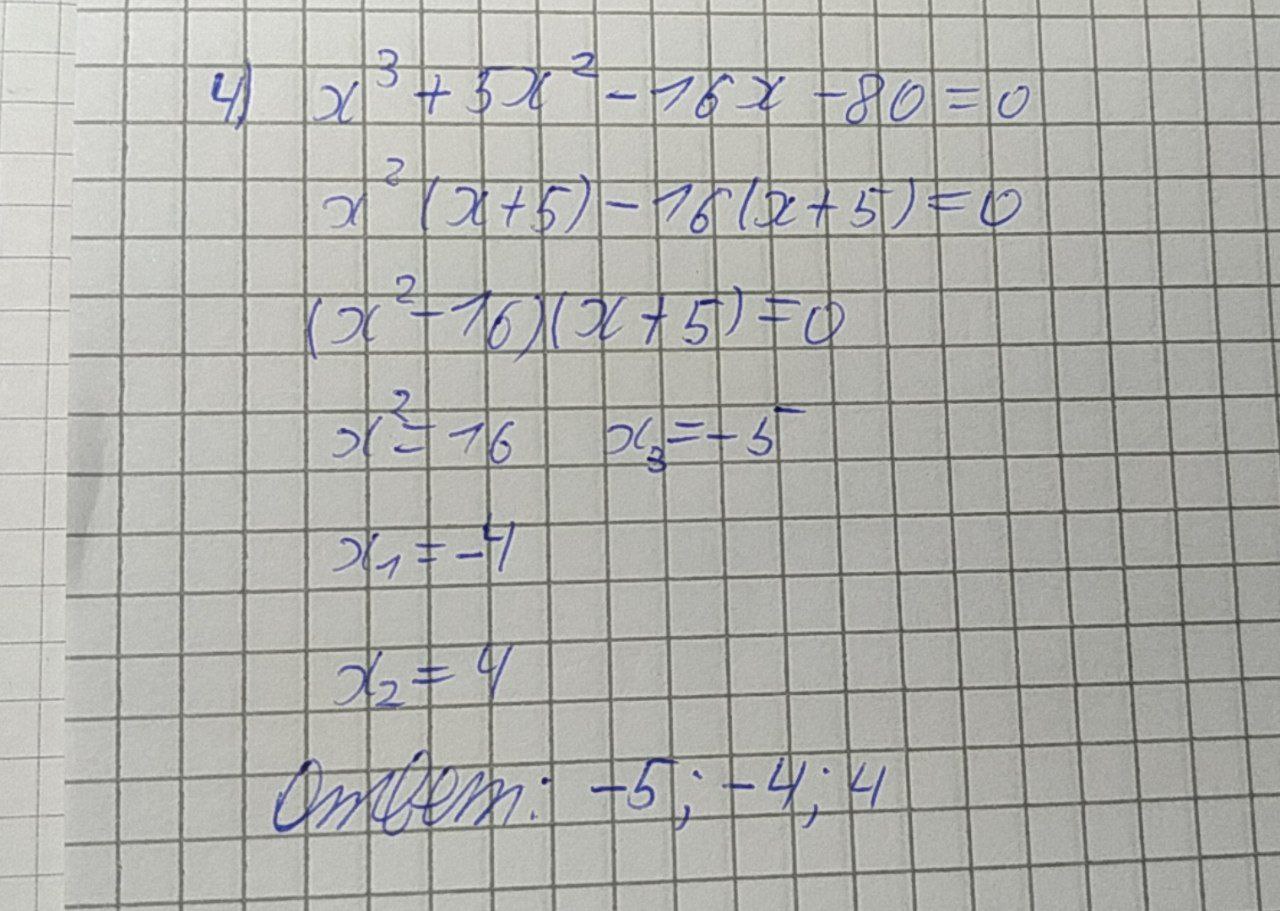 4) x³ + 5x² - 16x - 80 = 0
x² (x + 5) - 16 (x + 5) = 0
(x² - 16)(x + 5) = 0
x² = 16 x₃ = -5
x₁ = -4
x₂ = 4
Ответ: -5; -4; 4